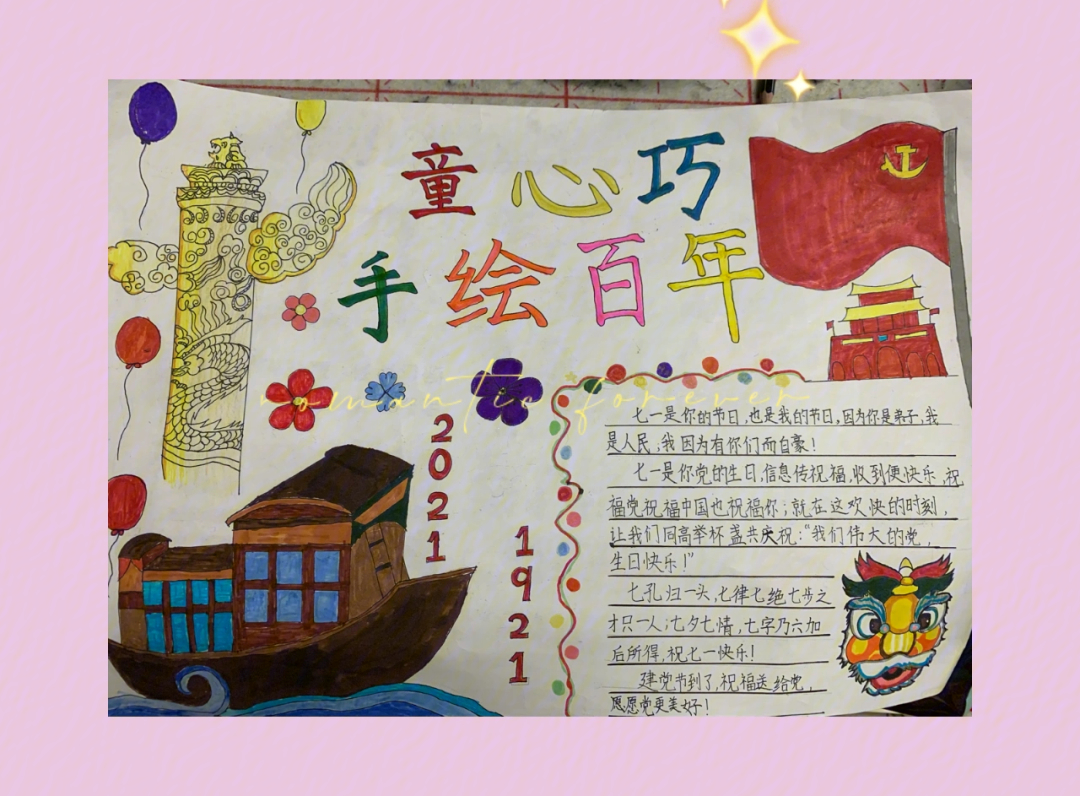 童心巧
手绘百年
romantic forever
2021
1921
七一是你的节日,也是我的节日,因为你是弟子,我
是人民,我因为有你们而自豪!
七一是你党的生日,信息传祝福,收到便快乐,祝
福党祝福中国也祝福你;就在这欢快的时刻,
让我们同高举杯盏共庆祝:“我们伟大的党,
生日快乐!”
七孔归一头,七律七绝七步之
才只一人;七夕七情,七字乃六加
后所得,祝七一快乐!
建党节到了,祝福送给党,
愿党更美好!